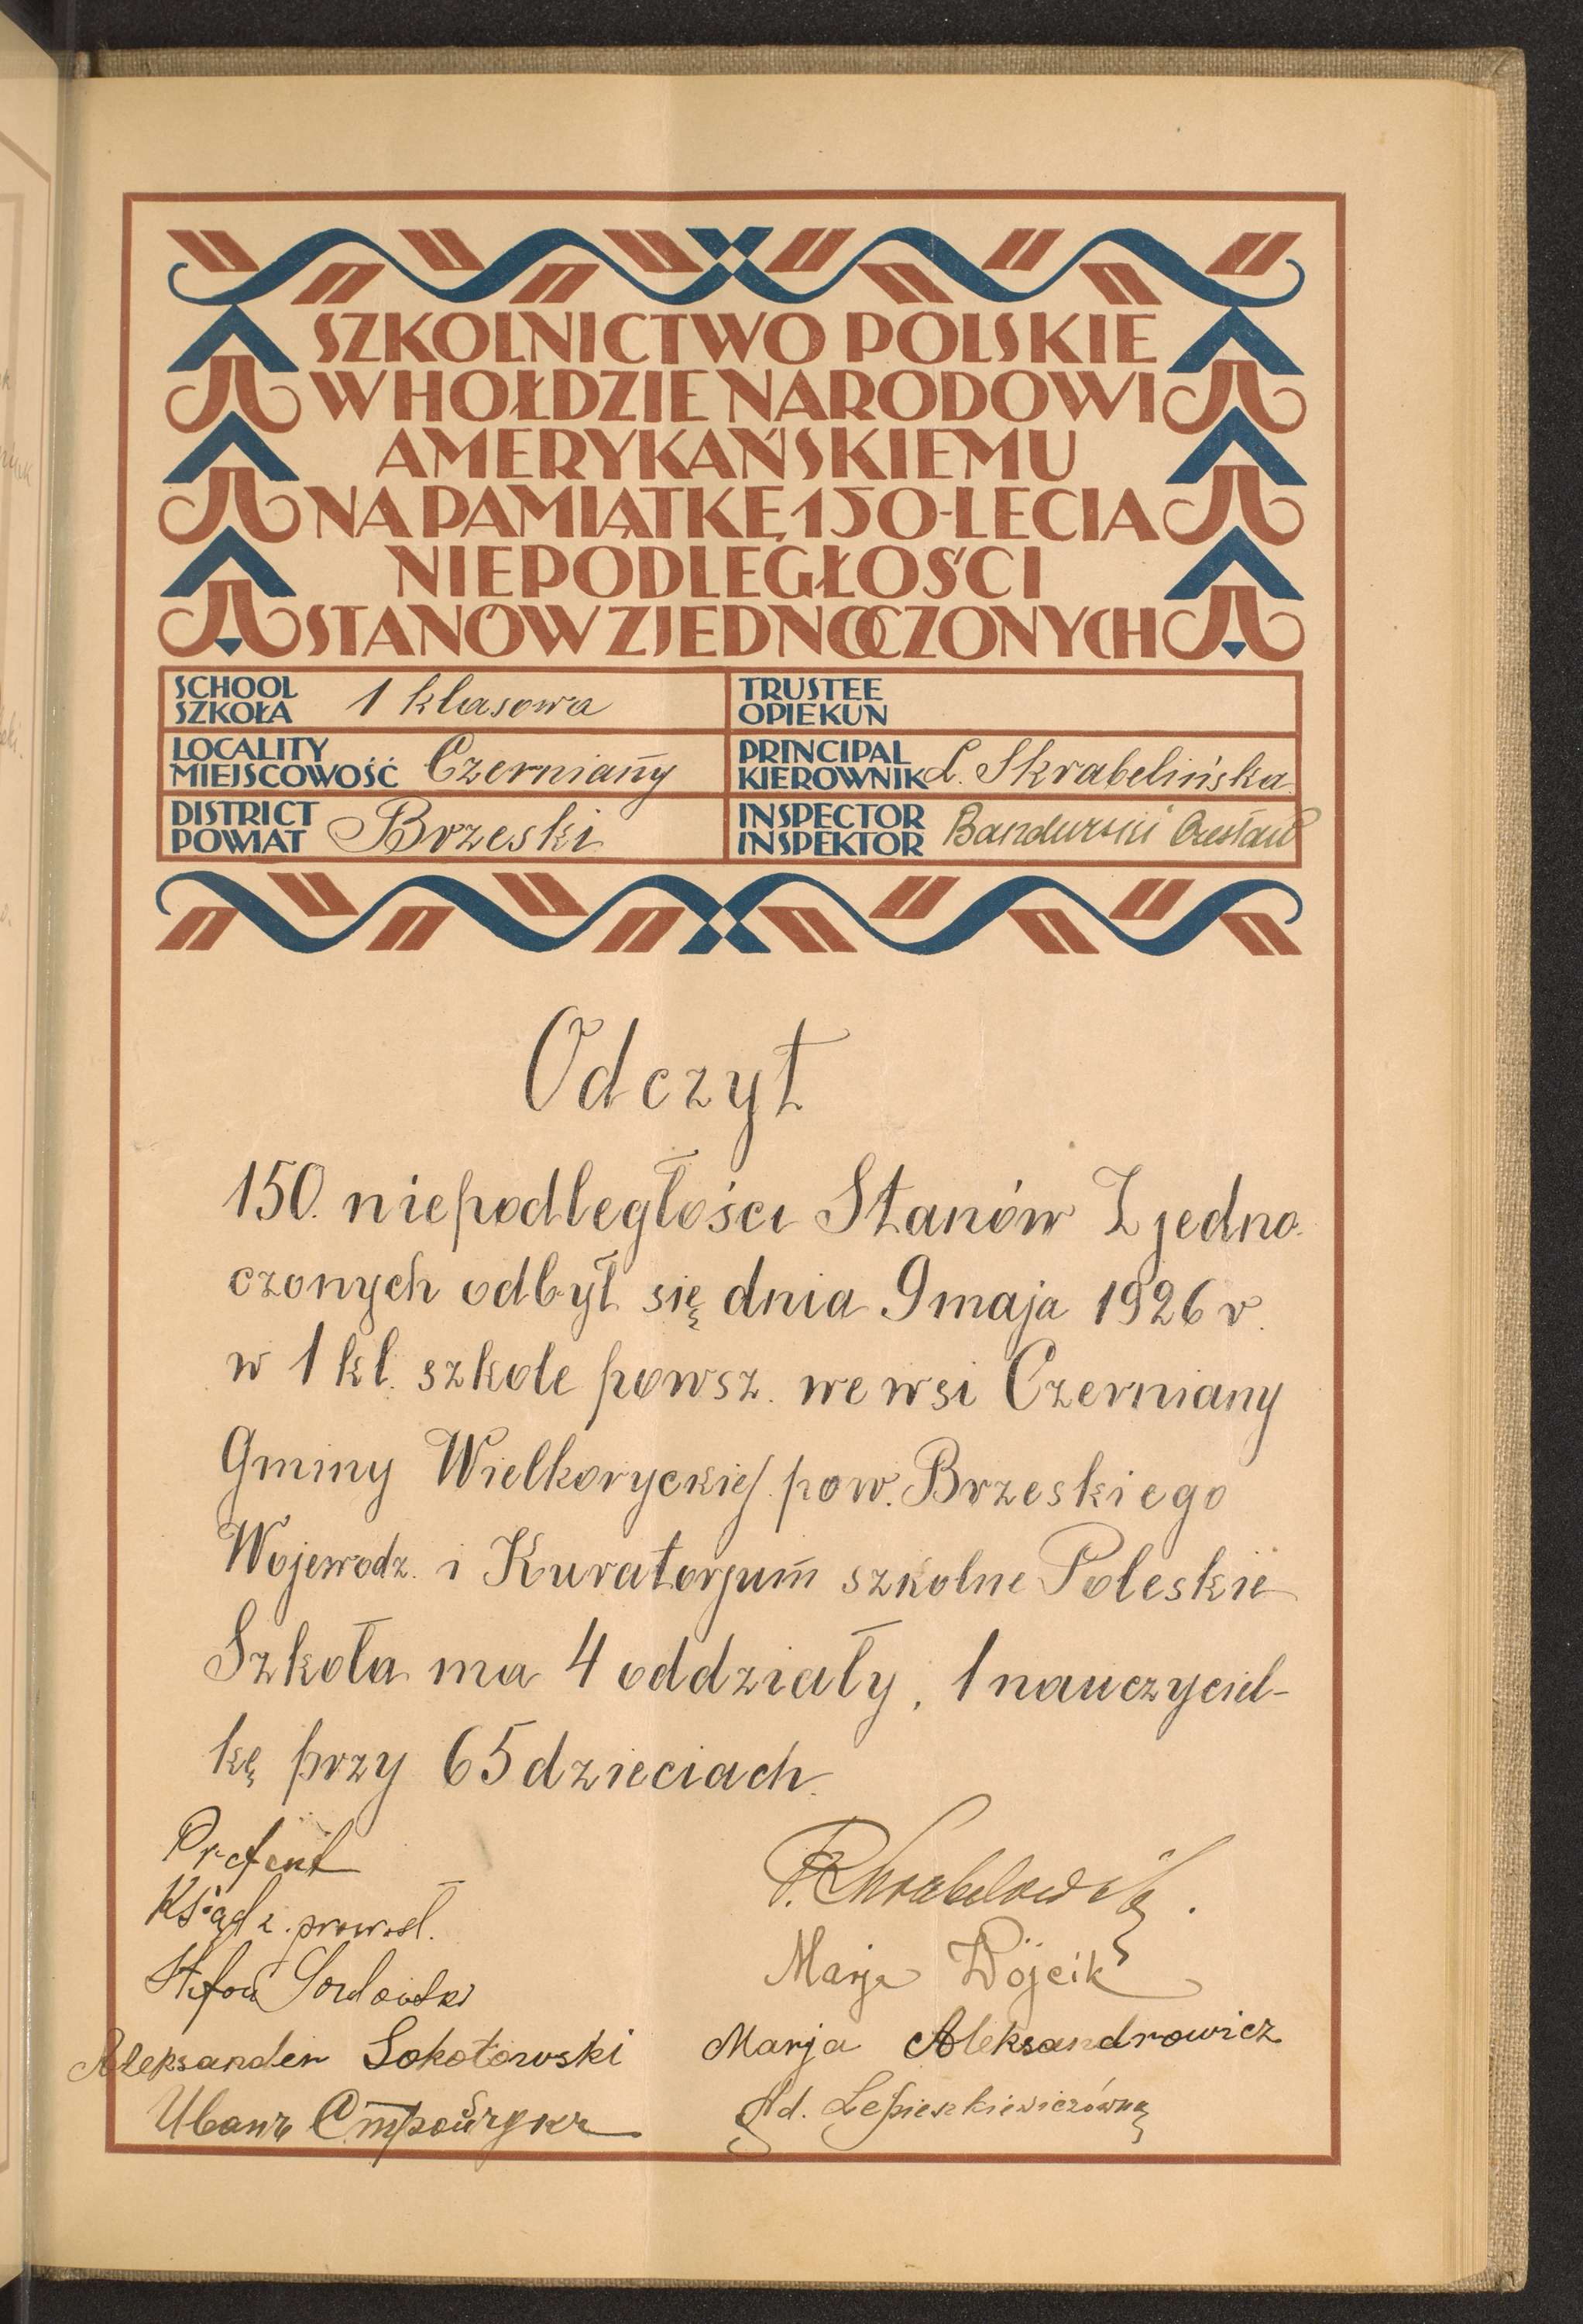 SZKOLNICTWO POLSKIE
W HOŁDZIE NARODOWI
AMERYKAŃSKIEMU
NA PAMIĄTKĘ 150-LECIA
NIEPODLEGŁOŚCI
STANÓW ZJEDNOCZONYCH
SCHOOL
SZKOŁA 1 klasowa
TRUSTEE
OPIEKUN
LOCALITY
MIEJSCOWOŚĆ Czerniany
PRINCIPAL
KIEROWNIK L. Skrabelińska
DISTRICT
POWIAT Brzeski
INSPECTOR
INSPEKTOR Bandurski Czesław
Odczyt
150. niepodległości Stanów Zjedno-
czonych odbył się dnia 9 maja 1926 r.
w 1 kl. szkole powsz. we wsi Czerniany
Gminy Wielkoryckiej pow. Brzeskiego
Wojewodz. i Kuratorjum szkolne Poleskie
Szkoła ma 4 oddziały, 1 nauczyciel-
kę przy 65 dzieciach.
Prefekt
Ksiądz prawosł.
Aleksander Sokołowski
Иванъ
Marja Wójcik
Marja Aleksandrowicz
Ad. Lepieszkiewiczówna